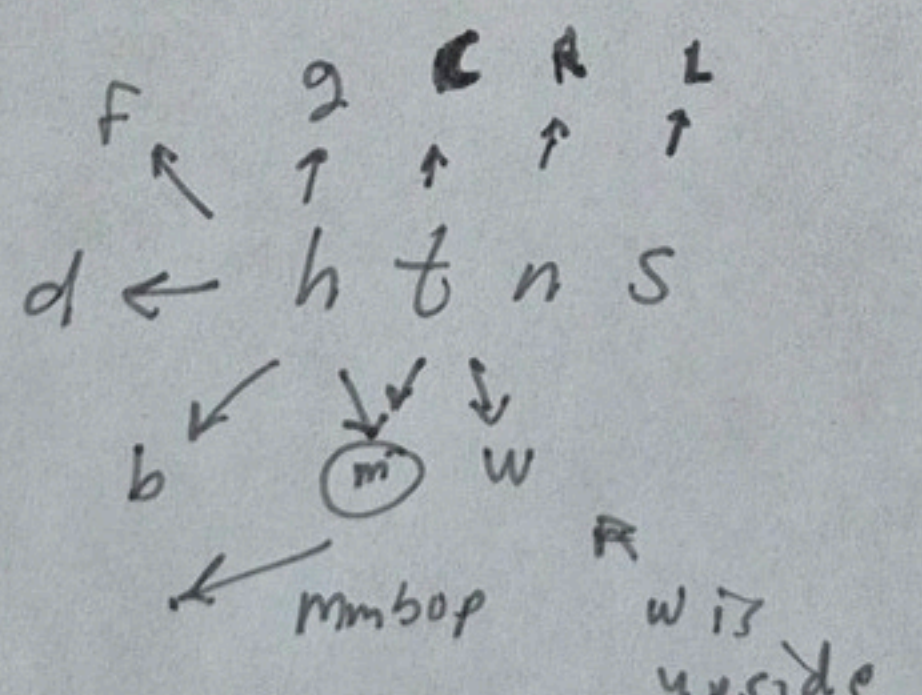 F g C R L
d h t n s
b m w
R
mmbop
w is
upside